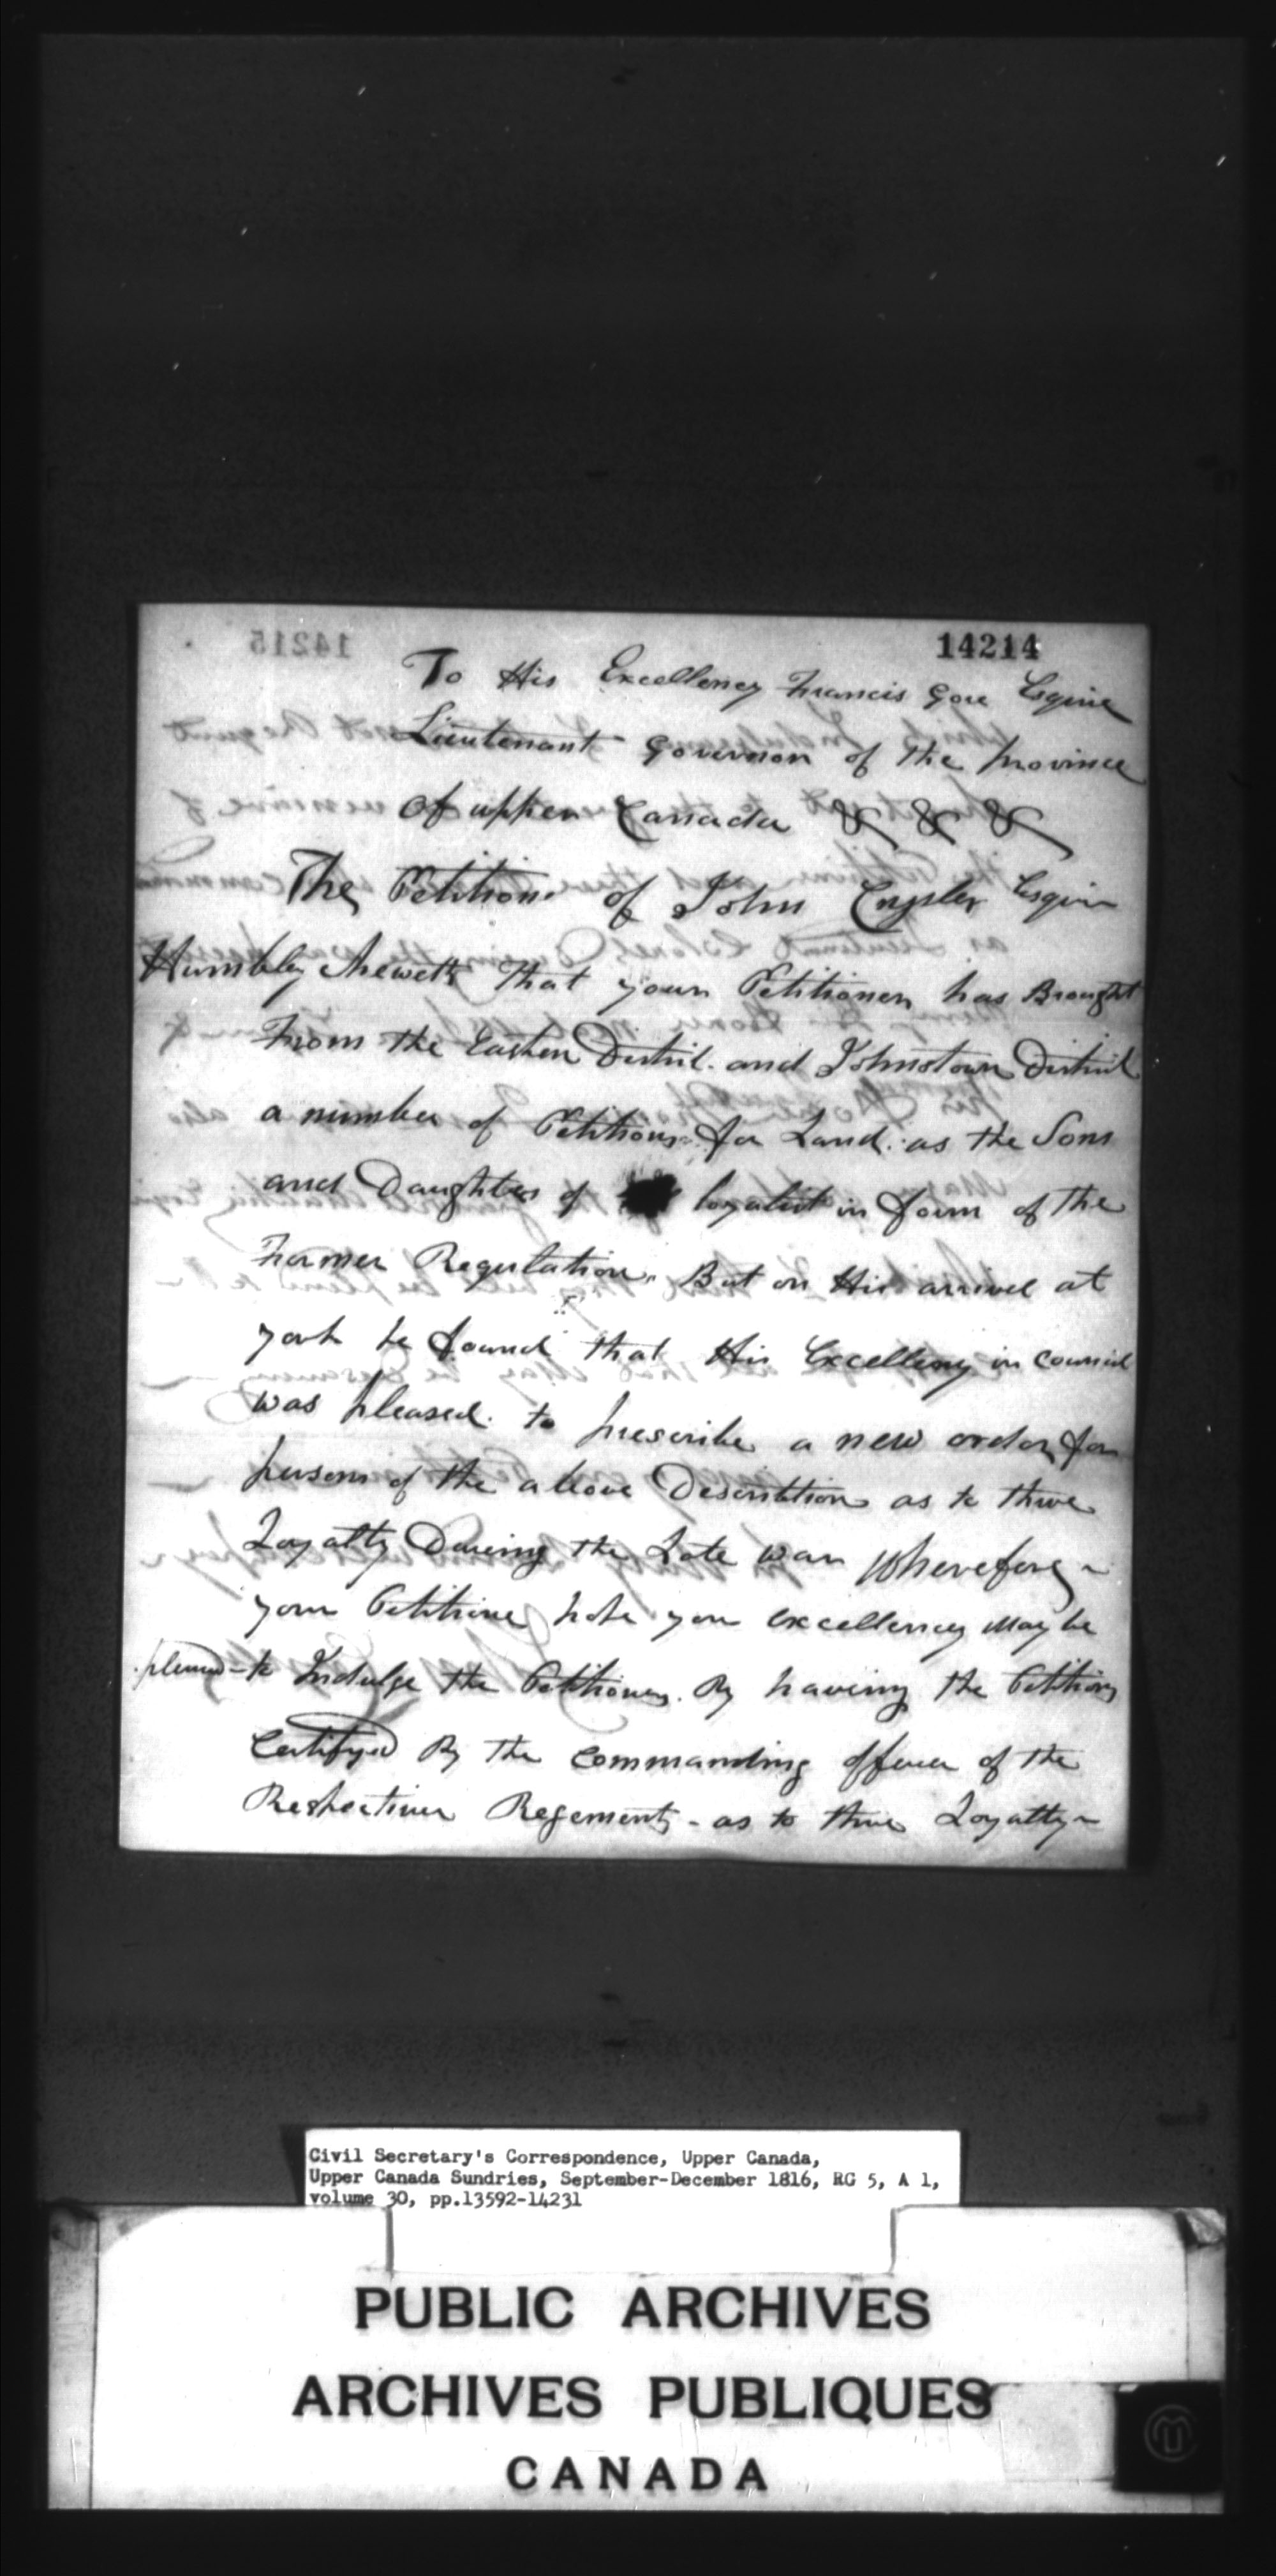 14214
To His Excellency Francis Gore Esquire
Lieutenant Governor of the province
of upper Canada & & &
The Petition of John Crysler Esquire
Humbley Sheweth That your Petitioner has Brought
From the Eastern District and Johnstown District
a number of Petitions for Land as the Sons
and Daughters of loyalist in form of the
Former Regulation. But on His arrivel at
york he found that His Excellency in Council
was pleased to prescribe a new order for
persons of the above Descrition as to thire
Loyalty During the Late war Wherefore
your Petitione hope your excellency May be
pleased to Indulge the Petitioners By having the Petitions
Certifyed By the Commanding officer of the
Respective Regements - as to thire Loyalty
Civil Secretary's Correspondence, Upper Canada,
Upper Canada Sundries, September-December 1816, RG 5, A 1,
volume 30, pp.13592-14231
PUBLIC ARCHIVES
ARCHIVES PUBLIQUES
CANADA